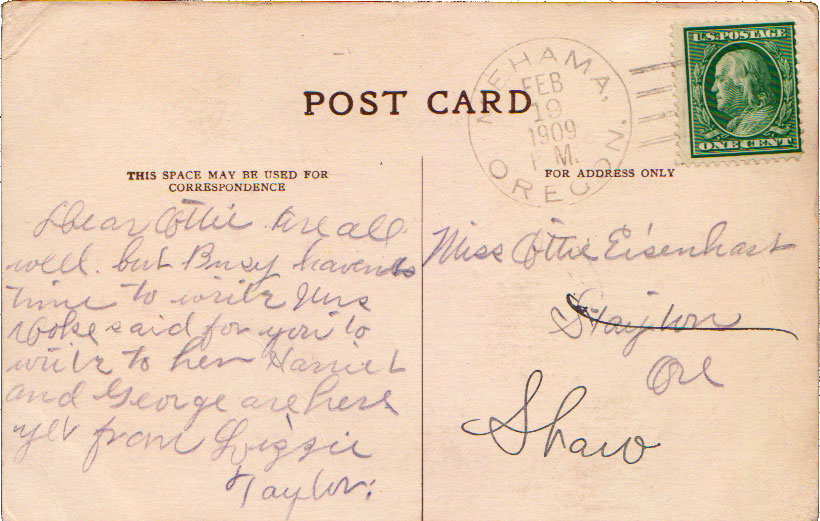 POST CARD
MEHAMA,
FEB
19
1909
P M.
OREGON.
U.S. POSTAGE
ONE CENT
THIS SPACE MAY BE USED FOR
CORRESPONDENCE
FOR ADDRESS ONLY
Dear Ottie Are all
well. but Busy havent
time to write Mrs
said for you to
write to her Harriet
and George are here
yet from Lizzie
Taylor.
Miss Ottie Eisenhart
Stayton
Ore
Shaw